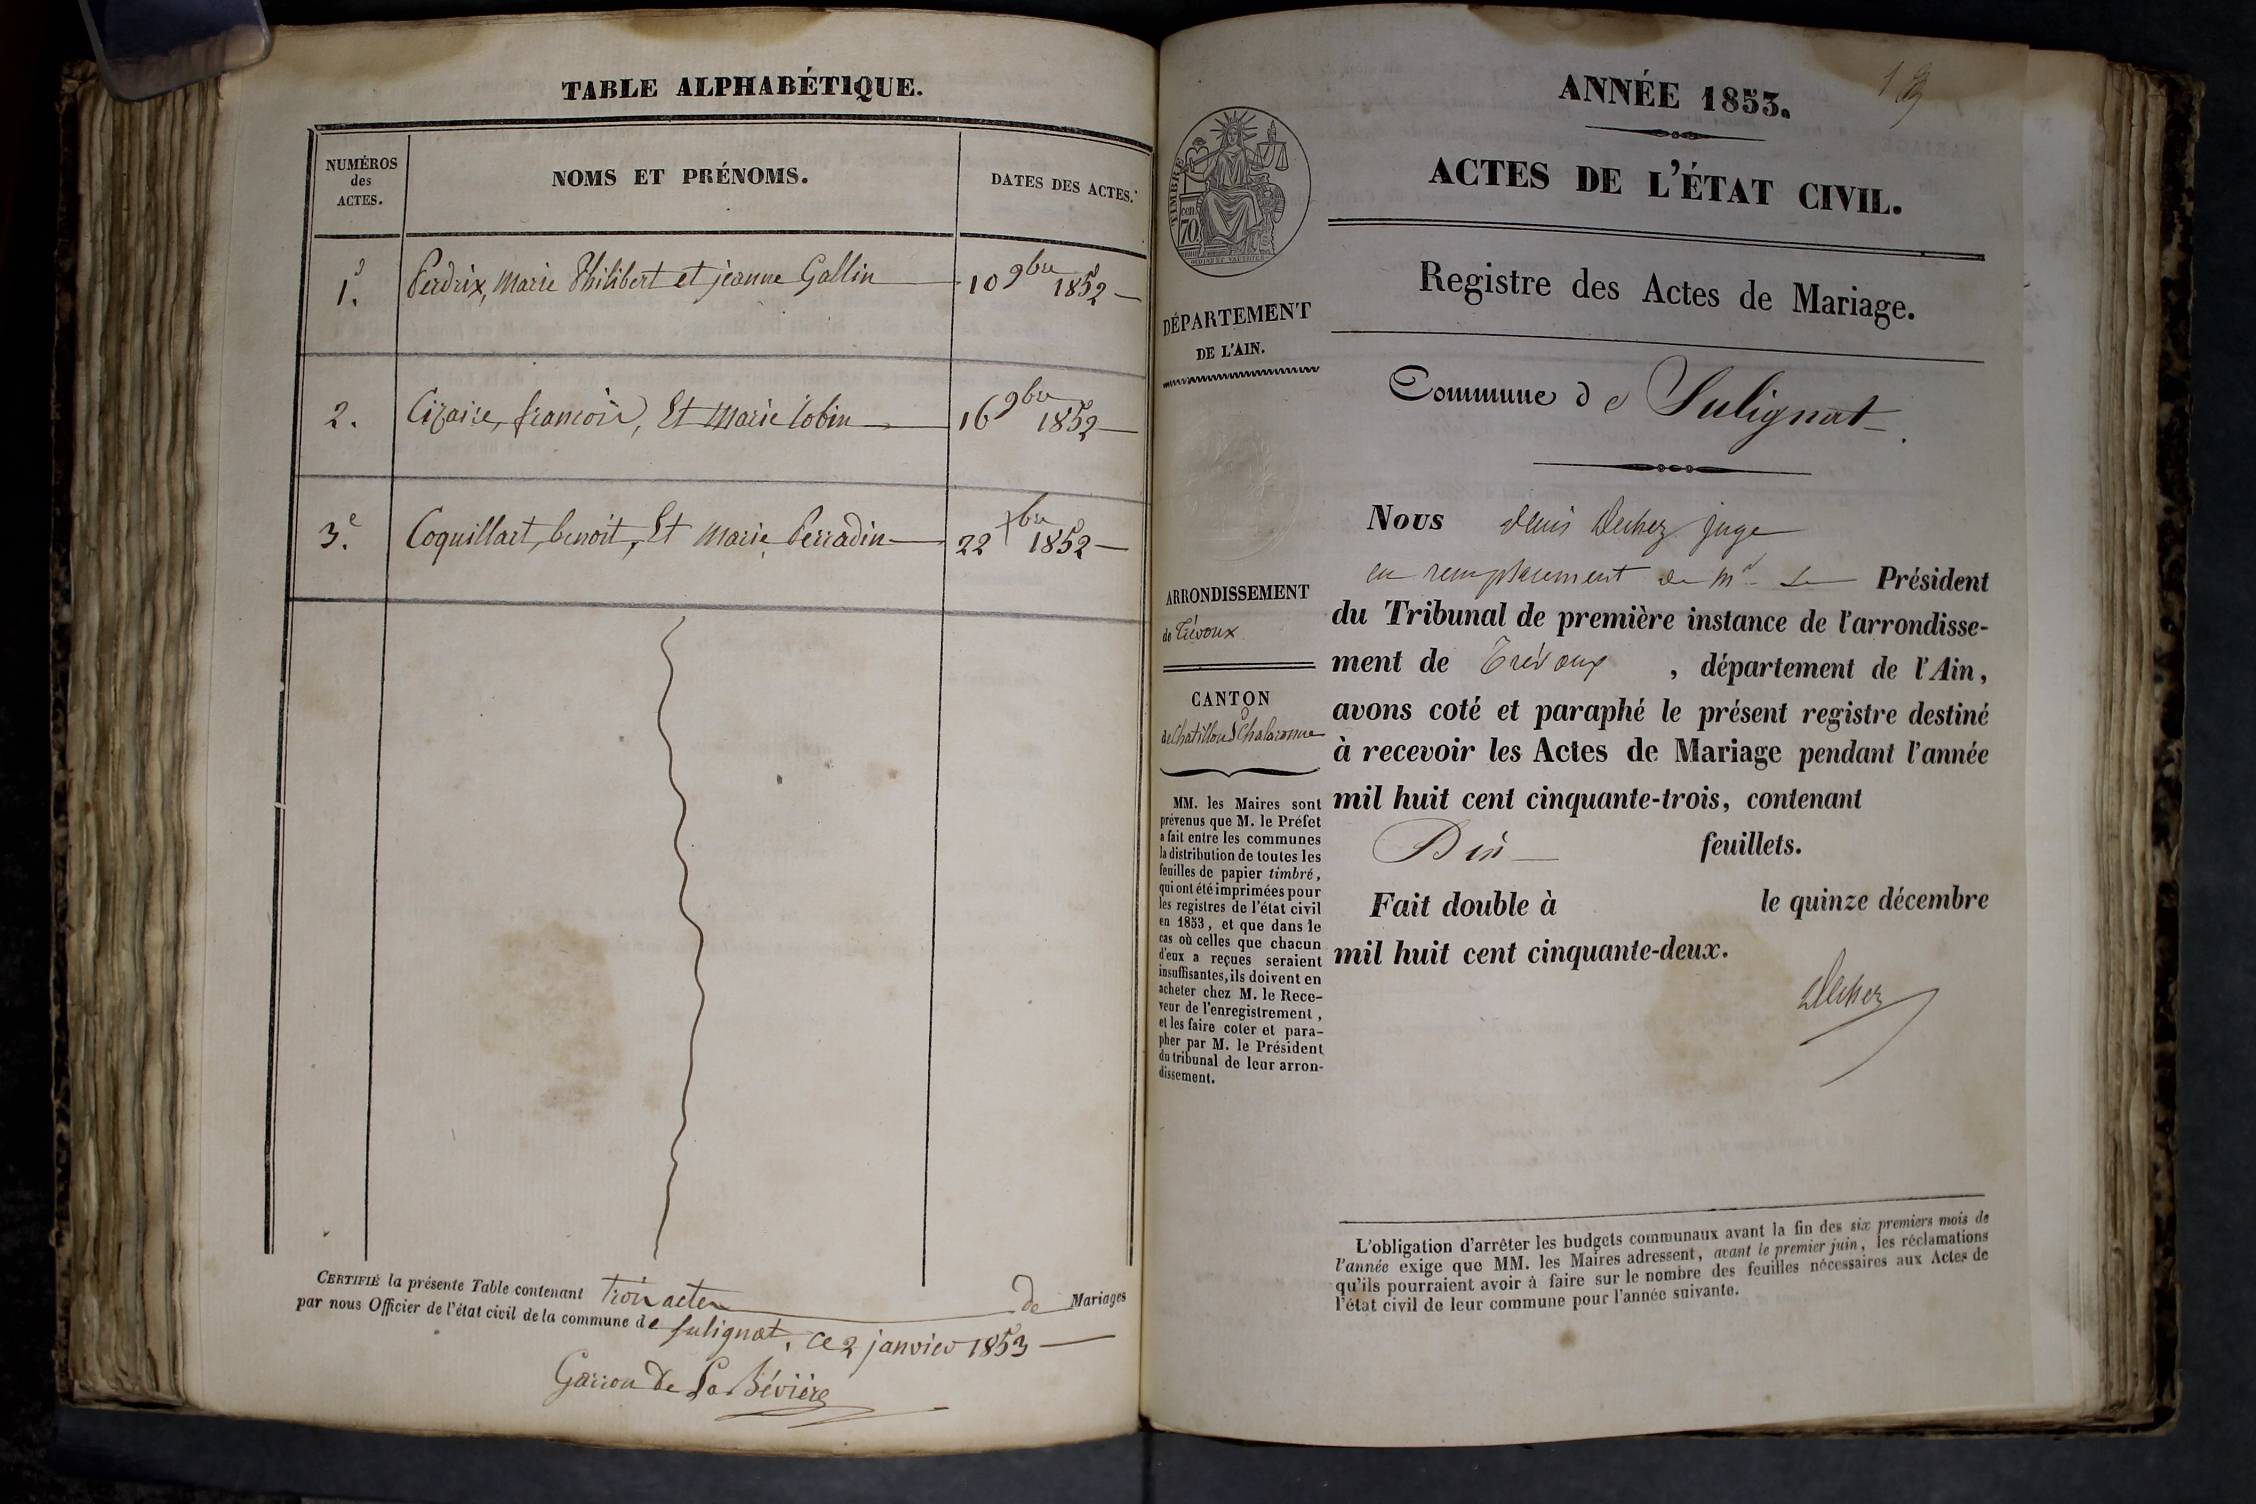 TABLE ALPHABÉTIQUE.
NUMÉROS
des
ACTES.
NOMS ET PRÉNOMS.
DATES DES ACTES.
1.
Perdrix, Marie Philibert et jeanne Gallin
10 9bre 1852
2.
Cizaire, francois, Et Marie Tobin
16 9bre 1852
3e.
Coquillart, benoit, Et Marie Perradin
22 xbre 1852
CERTIFIÉ la présente Table contenant trois actes de Mariages
par nous Officier de l'état civil de la commune de Sulignat, ce 2 janvier 1853
Garron De La Bévière
ANNÉE 1853.
ACTES DE L'ÉTAT CIVIL.
TIMBRE
70
DÉPARTEMENT
DE L'AIN.
ARRONDISSEMENT
de Trévoux
CANTON
de Chatillon S Chalaronne
MM. les Maires sont
prévenus que M. le Préfet
a fait entre les communes
la distribution de toutes les
feuilles de papier timbré,
qui ont été imprimées pour
les registres de l'état civil
en 1853, et que dans le
cas où celles que chacun
d'eux a reçues seraient
insuffisantes, ils doivent en
acheter chez M. le Rece-
veur de l'enregistrement,
et les faire coter et para-
pher par M. le Président
du tribunal de leur arron-
dissement.
Registre des Actes de Mariage.
Commune de Sulignat
Nous Denis Dechez juge
en remplacement de Mr Le Président
du Tribunal de première instance de l'arrondisse-
ment de Trévoux, département de l'Ain,
avons coté et paraphé le présent registre destiné
à recevoir les Actes de Mariage pendant l'année
mil huit cent cinquante-trois, contenant
Dix feuillets.
Fait double à le quinze décembre
mil huit cent cinquante-deux.
Dechez
L'obligation d'arrêter les budgets communaux avant la fin des six premiers mois de
l'année exige que MM. les Maires adressent, avant le premier juin, les réclamations
qu'ils pourraient avoir à faire sur le nombre des feuilles nécessaires aux Actes de
l'état civil de leur commune pour l'année suivante.